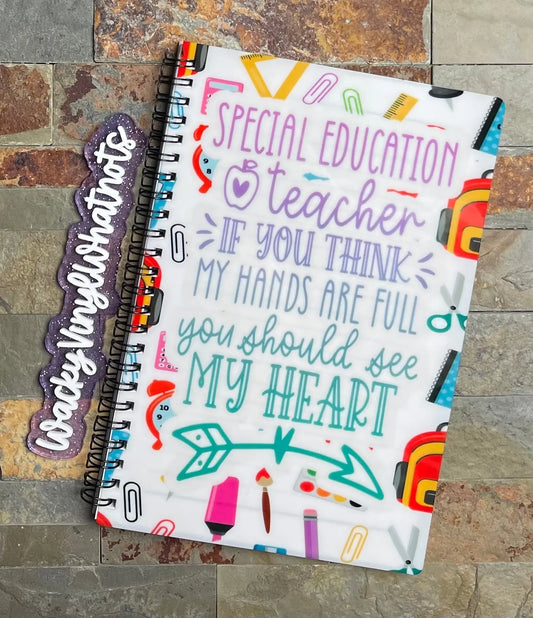 SPECIAL EDUCATION
teacher
IF YOU THINK
MY HANDS ARE FULL
you should see
MY HEART
WackyVinylWhatnots